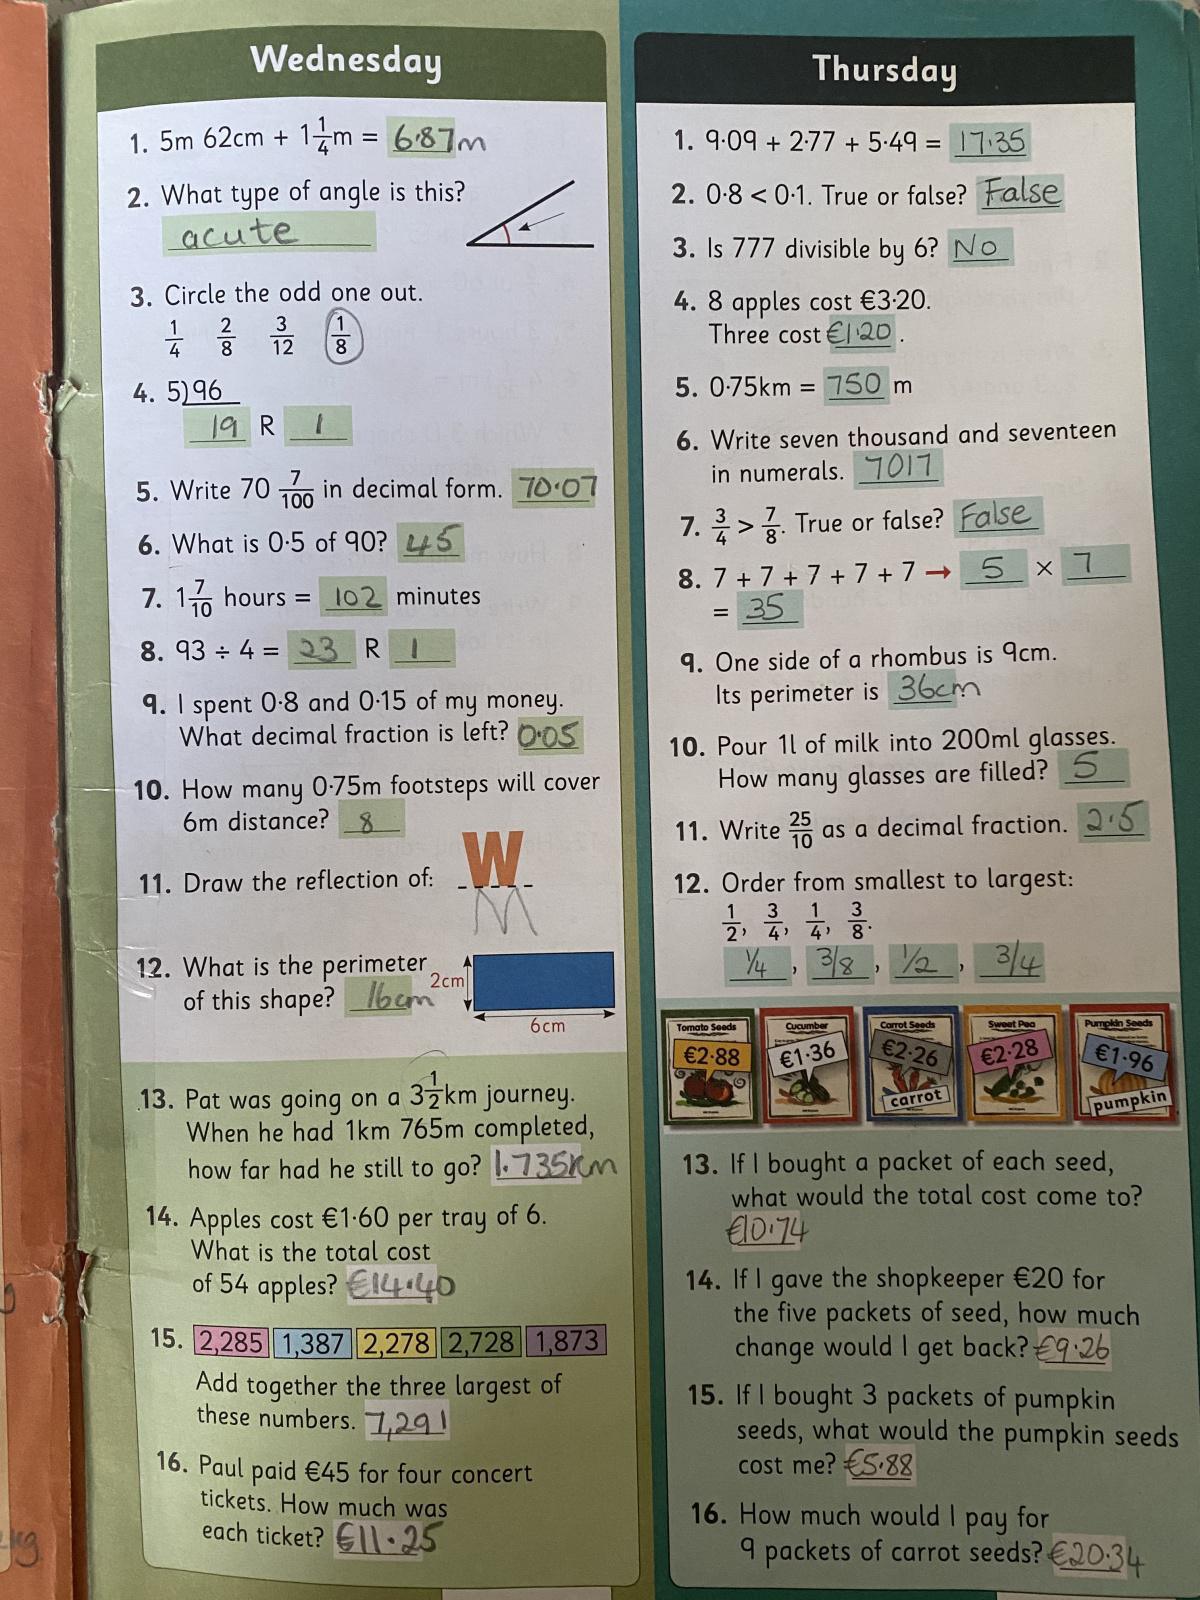 Wednesday
1. 5m 62cm + 1 1/4 m = 6·87m
2. What type of angle is this?
acute
3. Circle the odd one out.
1/4 2/8 3/12 1/8
4. 5)96
19 R 1
5. Write 70 7/100 in decimal form. 70·07
6. What is 0·5 of 90? 45
7. 1 7/10 hours = 102 minutes
8. 93 ÷ 4 = 23 R 1
9. I spent 0·8 and 0·15 of my money.
What decimal fraction is left? 0·05
10. How many 0·75m footsteps will cover
6m distance? 8
11. Draw the reflection of: W
12. What is the perimeter
of this shape? 16cm
2cm
6cm
13. Pat was going on a 3 1/2 km journey.
When he had 1km 765m completed,
how far had he still to go? 1.735km
14. Apples cost €1·60 per tray of 6.
What is the total cost
of 54 apples? €14.40
15. 2,285 1,387 2,278 2,728 1,873
Add together the three largest of
these numbers. 7,291
16. Paul paid €45 for four concert
tickets. How much was
each ticket? €11.25
Thursday
1. 9·09 + 2·77 + 5·49 = 17·35
2. 0·8 < 0·1. True or false? False
3. Is 777 divisible by 6? No
4. 8 apples cost €3·20.
Three cost €1·20.
5. 0·75km = 750 m
6. Write seven thousand and seventeen
in numerals. 7017
7. 3/4 > 7/8. True or false? False
8. 7 + 7 + 7 + 7 + 7 → 5 × 7
= 35
9. One side of a rhombus is 9cm.
Its perimeter is 36cm
10. Pour 1l of milk into 200ml glasses.
How many glasses are filled? 5
11. Write 25/10 as a decimal fraction. 2·5
12. Order from smallest to largest:
1/2, 3/4, 1/4, 3/8.
1/4, 3/8, 1/2, 3/4
Tomato Seeds Cucumber Carrot Seeds Sweet Pea Pumpkin Seeds
€2·88 €1·36 €2·26 €2·28 €1·96
carrot pumpkin
13. If I bought a packet of each seed,
what would the total cost come to?
€10·74
14. If I gave the shopkeeper €20 for
the five packets of seed, how much
change would I get back? €9·26
15. If I bought 3 packets of pumpkin
seeds, what would the pumpkin seeds
cost me? €5·88
16. How much would I pay for
9 packets of carrot seeds? €20·34